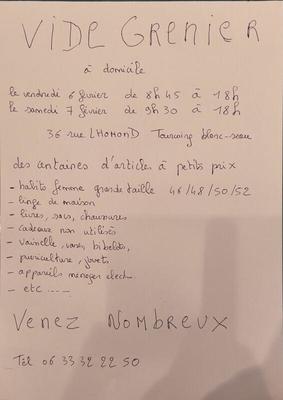 VIDE GRENIER
à domicile
le vendredi 6 février de 8h45 à 18h
le samedi 7 février de 9h30 à 18h
36 rue LHOMOND Tourcoing blanc-seau
des centaines d'articles à petits prix
- habits femme grande taille 46/48/50/52
- linge de maison
- livres, sacs, chaussures
- cadeaux non utilisés
- vaisselle, vases, bibelots,
- puériculture, jouets
- appareils ménager elect.
- etc ----
VENEZ NOMBREUX
Tél 06 33 32 22 50